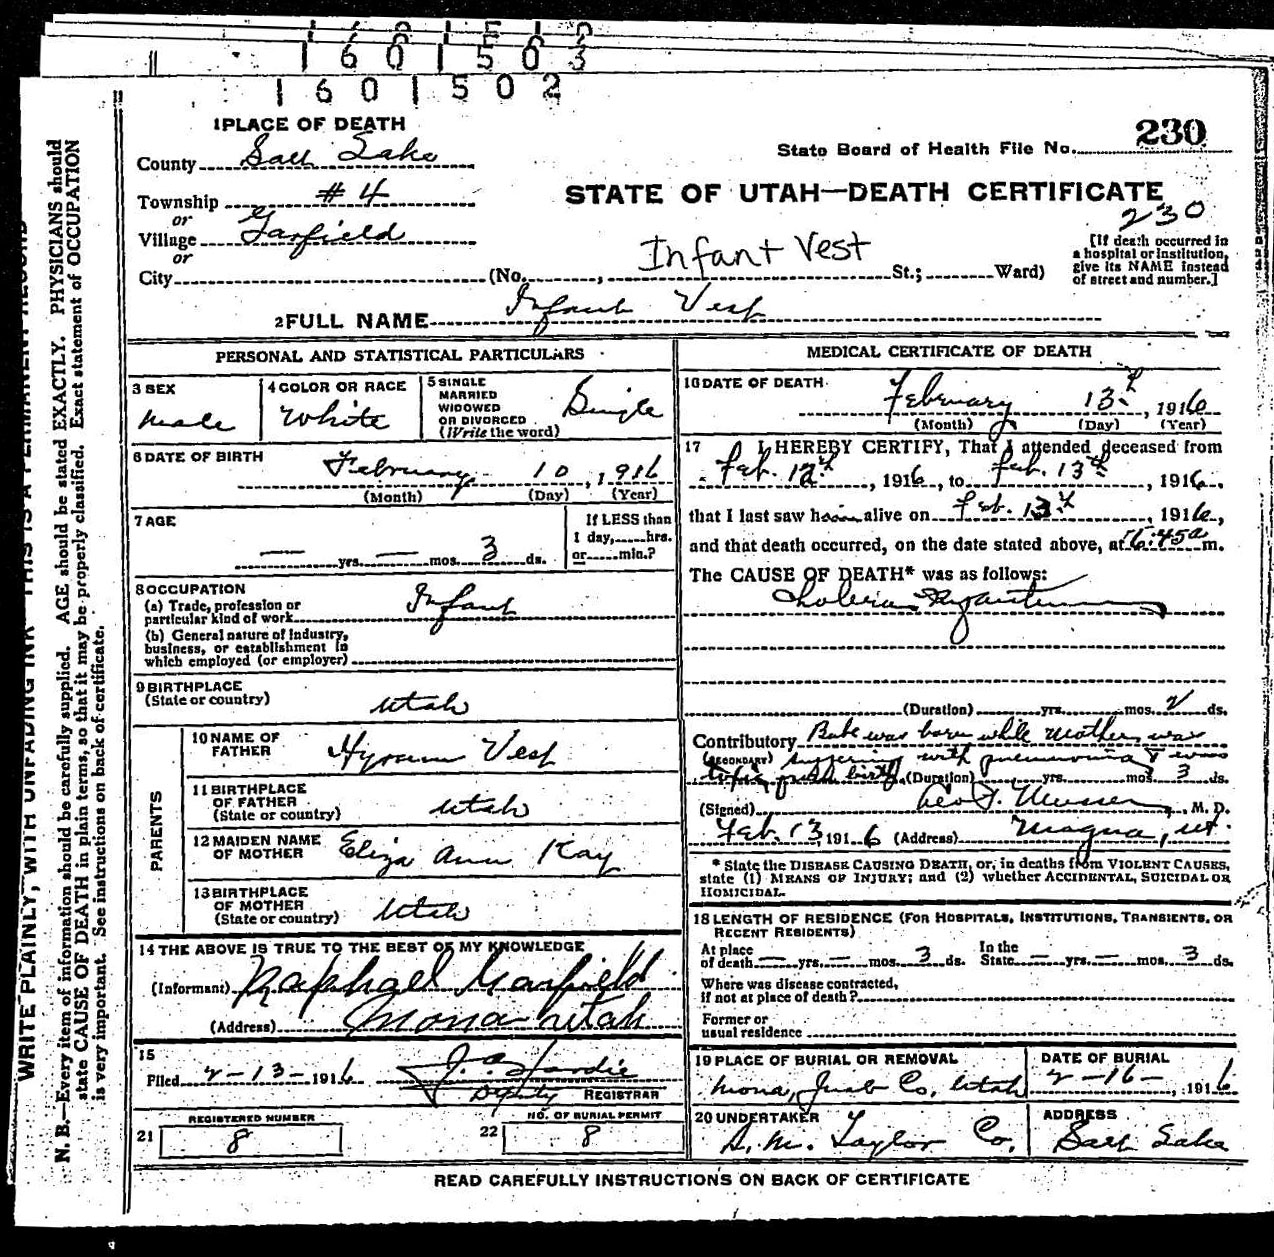 1601503
1601502
1 PLACE OF DEATH
County Salt Lake
Township #4
or
Village Garfield
or
City (No. , St.; Ward)
Infant Vest
State Board of Health File No. 230
STATE OF UTAH—DEATH CERTIFICATE
230
[If death occurred in
a hospital or institution,
give its NAME instead
of street and number.]
2 FULL NAME Infant Vest
PERSONAL AND STATISTICAL PARTICULARS
3 SEX
Male
4 COLOR OR RACE
White
5 SINGLE
MARRIED
WIDOWED
OR DIVORCED
(Write the word)
Single
6 DATE OF BIRTH
February 10, 1916
(Month) (Day) (Year)
7 AGE
— yrs. — mos. 3 ds.
If LESS than
1 day, hrs.
or min.?
8 OCCUPATION
(a) Trade, profession or
particular kind of work Infant
(b) General nature of industry,
business, or establishment in
which employed (or employer)
9 BIRTHPLACE
(State or country) Utah
PARENTS
10 NAME OF
FATHER Hyrum Vest
11 BIRTHPLACE
OF FATHER
(State or country) Utah
12 MAIDEN NAME
OF MOTHER Eliza Ann Kay
13 BIRTHPLACE
OF MOTHER
(State or country) Utah
14 THE ABOVE IS TRUE TO THE BEST OF MY KNOWLEDGE
(Informant) Raphael Garfield
(Address) Mona Utah
15
Filed 2-13-1916 J. Hardie
Deputy REGISTRAR
REGISTERED NUMBER
21 8
NO. OF BURIAL PERMIT
22 8
MEDICAL CERTIFICATE OF DEATH
16 DATE OF DEATH
February 13th, 1916
(Month) (Day) (Year)
17 I HEREBY CERTIFY, That I attended deceased from
Feb. 12th, 1916, to Feb. 13th, 1916,
that I last saw him alive on Feb. 13th, 1916,
and that death occurred, on the date stated above, at 6:45a m.
The CAUSE OF DEATH* was as follows:
Cholera
(Duration) yrs. mos. 2 ds.
Contributory Babe was born while mother was
(SECONDARY) suffering with pneumonia & was
toxic birth (Duration) yrs. mos. 3 ds.
(Signed) Geo. , M. D.
Feb. 13, 1916 (Address) Magna, Ut.
* State the DISEASE CAUSING DEATH, or, in deaths from VIOLENT CAUSES,
state (1) MEANS OF INJURY; and (2) whether ACCIDENTAL, SUICIDAL OR
HOMICIDAL.
18 LENGTH OF RESIDENCE (FOR HOSPITALS, INSTITUTIONS, TRANSIENTS, OR
RECENT RESIDENTS)
At place
of death — yrs. — mos. 3 ds. In the
State — yrs. — mos. 3 ds.
Where was disease contracted,
if not at place of death?
Former or
usual residence
19 PLACE OF BURIAL OR REMOVAL
Mona, Juab Co, Utah
DATE OF BURIAL
2-16-, 1916
20 UNDERTAKER
S. M. Taylor Co.
ADDRESS
Salt Lake
READ CAREFULLY INSTRUCTIONS ON BACK OF CERTIFICATE
WRITE PLAINLY, WITH UNFADING INK—THIS IS A PERMANENT RECORD
N. B.—Every item of information should be carefully supplied. AGE should be stated EXACTLY. PHYSICIANS should
state CAUSE OF DEATH in plain terms, so that it may be properly classified. Exact statement of OCCUPATION
is very important. See instructions on back of certificate.